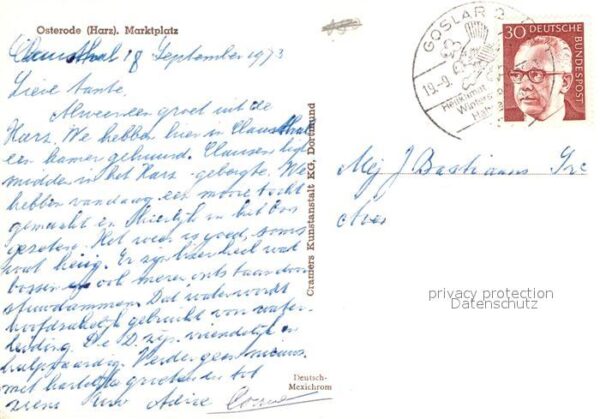 Osterode (Harz). Marktplatz
Clausthal 18 September 1973
Lieve tante.
Alweer een groet uit de
Harz. We hebben hier in Clausthal
een kamer gehuurd. Clausthal ligt
midden in het Harz-gebergte. We
hebben vandaag een mooie tocht
gemaakt en heerlijk in het bos
gezeten. Het weer is goed, soms
wat heiig. Er zijn hier heel wat
bossen en ook meren ontstaan door
stuwdammen. Dat water wordt
hoofdzakelijk gebruikt voor water-
leiding. De D. zijn vriendelijk en
hulpvaardig. Verder geen nieuws
met hartelijke groeten en tot
ziens
Cramers Kunstanstalt KG, Dortmund
Deutsch-
Mexichrom
GOSLAR 2
19.-9.
Heilklima
Winters
30
DEUTSCHE
BUNDESPOST
Mej J Bastiaans
privacy protection
Datenschutz